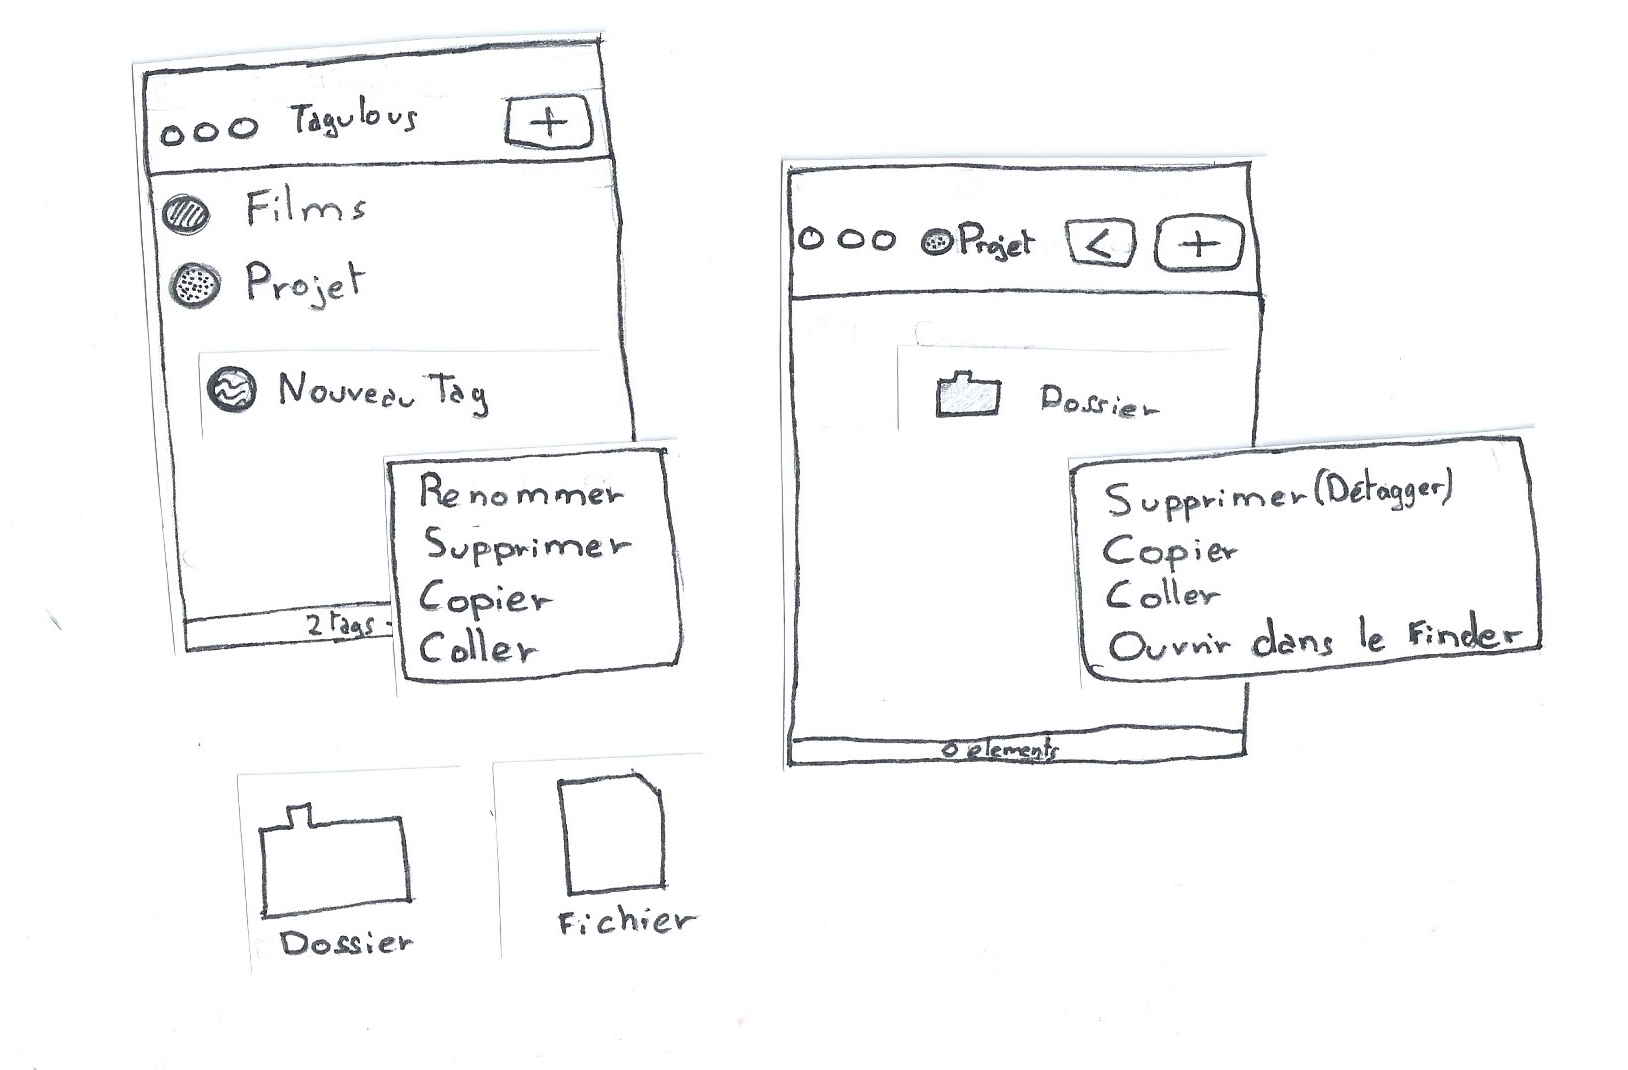 Tagulous +
Films
Projet
Nouveau Tag
Renommer
Supprimer
Copier
Coller
2 tags
Projet < +
Dossier
Supprimer (Détagger)
Copier
Coller
Ouvrir dans le Finder
0 elements
Dossier
Fichier